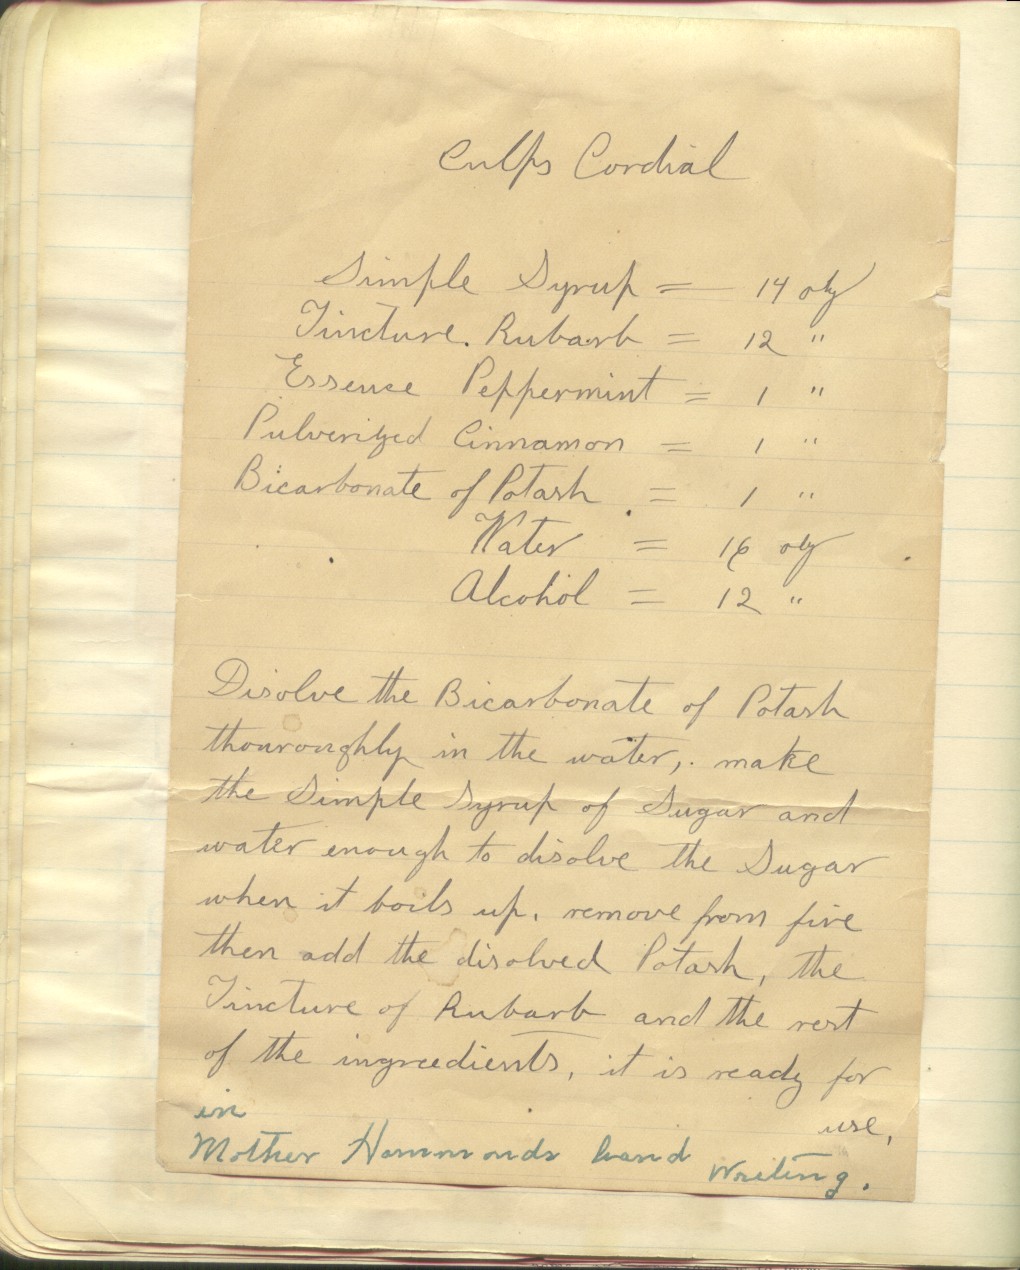 Culps Cordial
Simple Syrup = 14 oz
Tincture. Rubarb = 12 "
Essence Peppermint = 1 "
Pulverized Cinnamon = 1 "
Bicarbonate of Potash = 1 "
Water = 16 oz
Alcohol = 12 "
Disolve the Bicarbonate of Potash
thouroughly in the water, make
the Simple Syrup of Sugar and
water enough to disolve the Sugar
when it boils up, remove from fire
then add the disolved Potash, the
Tincture of Rubarb and the rest
of the ingreedients, it is ready for
use,
in
Mother Hammonds hand writing.